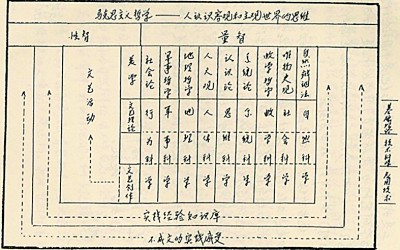 马克思主义哲学——人认识客观和主观世界的思维
性智
量智
文艺活动
美学
文艺理论
文艺创作
社会论
行为科学
军事哲学
军事科学
地理哲学
地理科学
人天观
人体科学
认识论
思维科学
系统论
系统科学
数学哲学
数学科学
唯物史观
社会科学
自然辩证法
自然科学
基础理论
技术科学
应用技术
实践经验知识库
不成文的实践感受